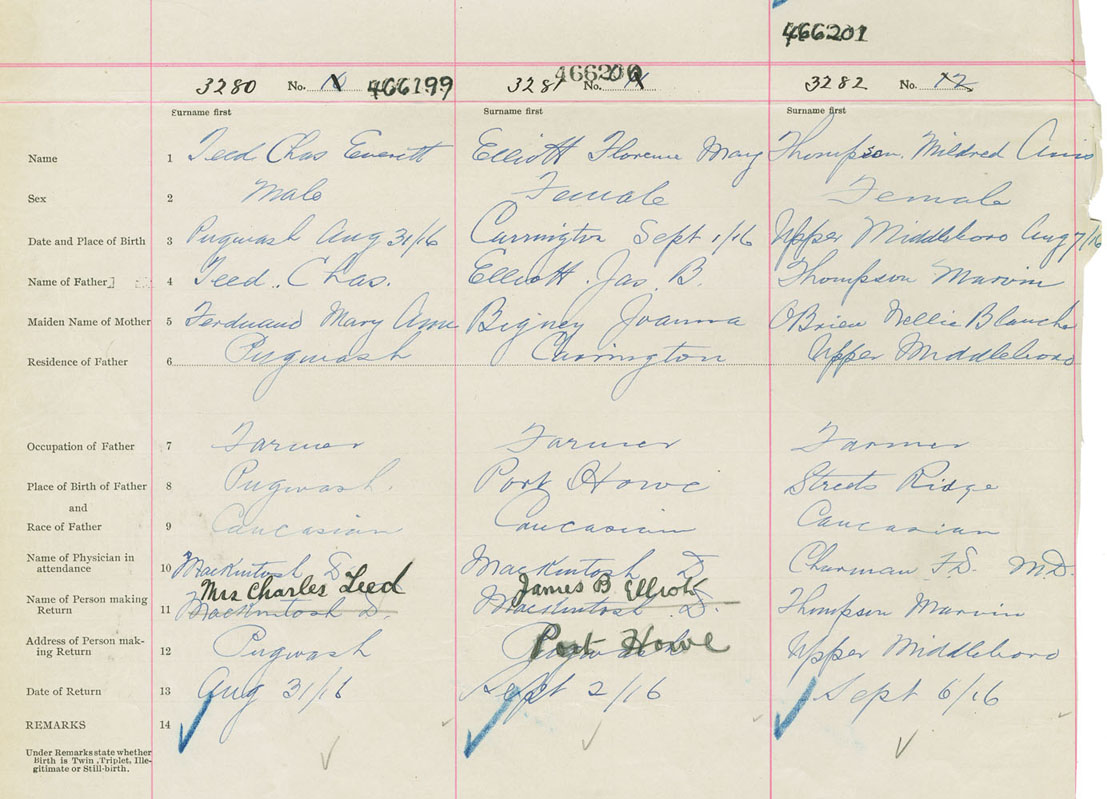 466201
3280 No. 466199 3281 466200 No. 3282 No. 12
Surname first Surname first Surname first
Name 1 Teed Chas Everett Elliott Florence May Thompson. Mildred
Sex 2 Male Female Female
Date and Place of Birth 3 Pugwash Aug 31/16 Carrington Sept 1/16 Upper Middleboro Aug 7/16
Name of Father 4 Teed, Chas. Elliott. Jas. B. Thompson Marvin
Maiden Name of Mother 5 Ferdinand Mary Ann Bigney Joanna OBrien Nellie Blanche
Residence of Father 6 Pugwash Carrington Upper Middleboro
Occupation of Father 7 Farmer Farmer Farmer
Place of Birth of Father 8 Pugwash Port Howe Streets Ridge
and
Race of Father 9 Caucasian Caucasian Caucasian
Name of Physician in
attendance 10 Mackintosh D Mackintosh D Charman F.D. M.D.
Mrs Charles Teed James B. Elliott
Name of Person making
Return 11 Mackintosh D. Mackintosh D. Thompson Marvin
Address of Person mak-
ing Return 12 Pugwash Port Howe Upper Middleboro
Date of Return 13 Aug 31/16 Sept 2/16 Sept 6/16
REMARKS 14
Under Remarks state whether
Birth is Twin, Triplet, Ille-
gitimate or Still-birth.